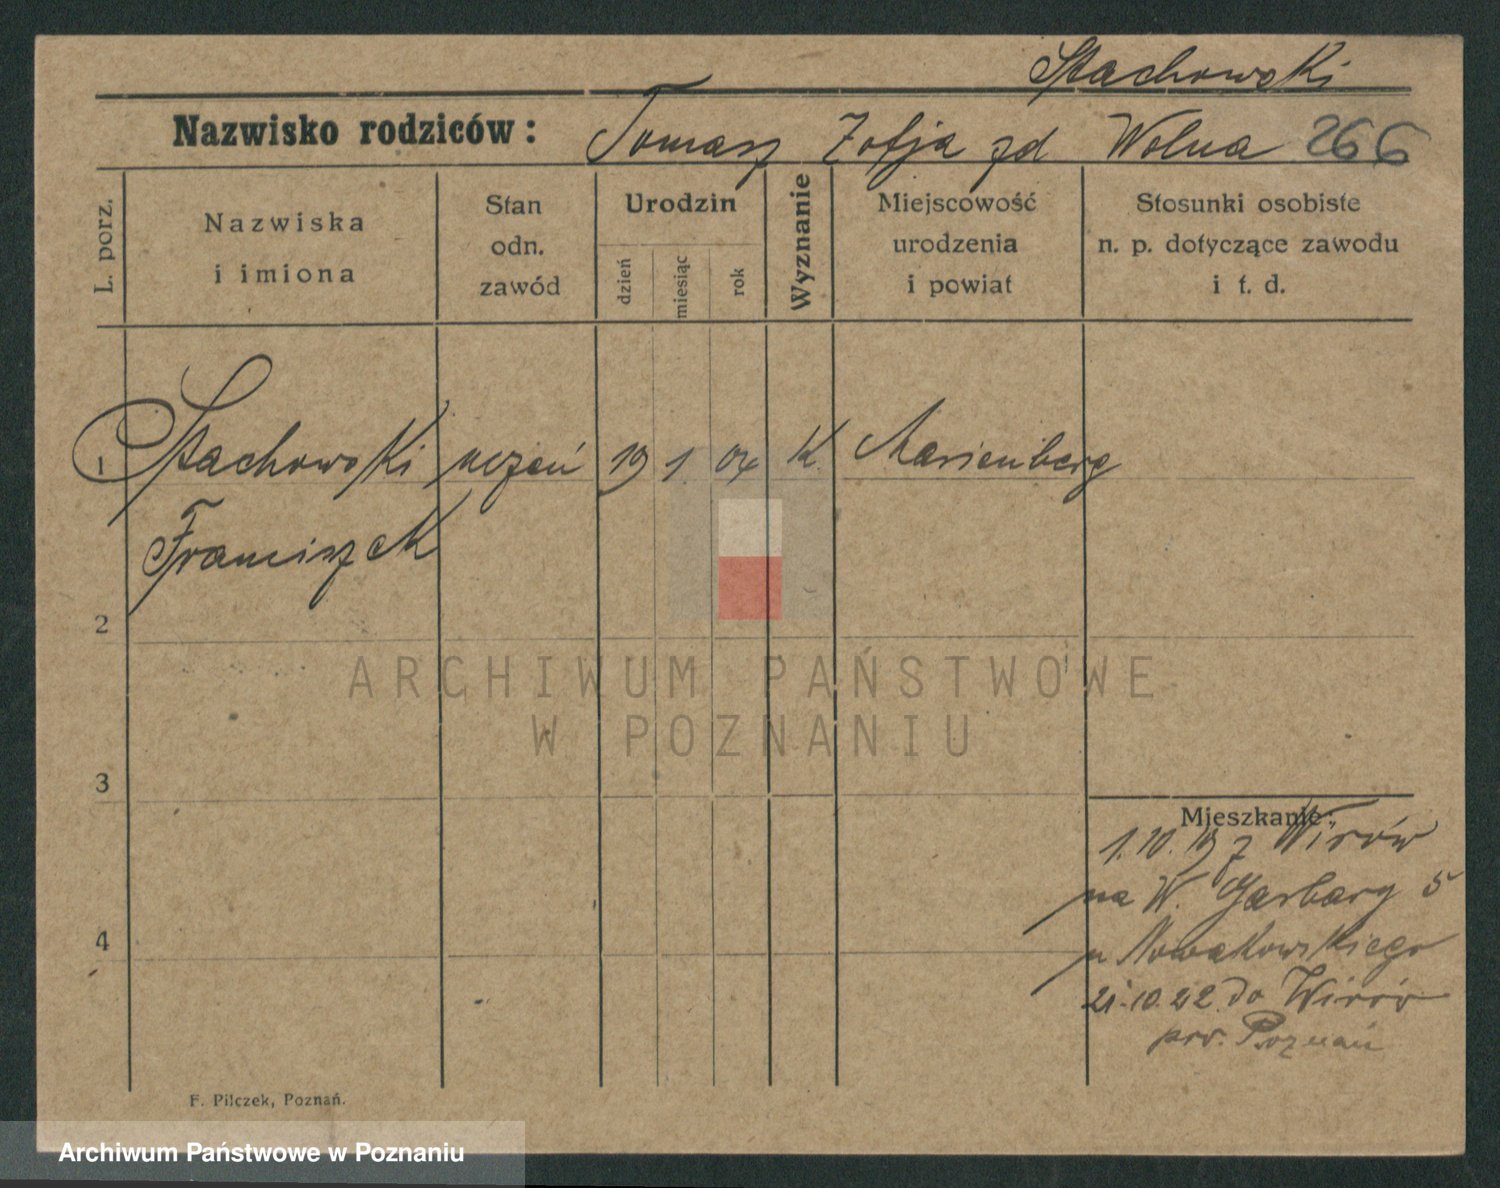 Stachowski
Nazwisko rodziców: Tomasz Zofja zd Wolna 266
L. porz.
Nazwiska
i imiona
Stan
odn.
zawód
Urodzin
dzień
miesiąc
rok
Wyznanie
Miejscowość
urodzenia
i powiat
Stosunki osobiste
n. p. dotyczące zawodu
i t. d.
1 Stachowski uczeń 19 1. 04 K. Marienberg
Franciszek
2
ARCHIWUM PAŃSTWOWE
W POZNANIU
3
Mieszkanie:
1.10.19 z Wirów
na W. Garbary 5
u Nowakowskiego
4
21.10.22 do Wirów
pow. Poznań
F. Pilczek, Poznań.
Archiwum Państwowe w Poznaniu